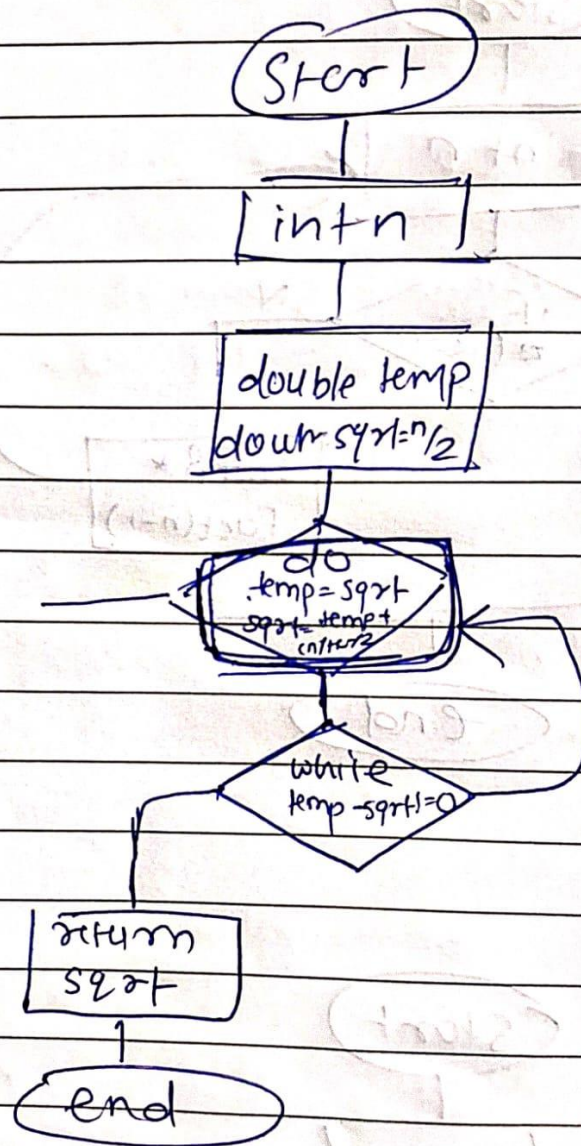 Start
int n
double temp
doubl sqrt=n/2
do
temp=sqrt
sqrt= temp+
while
temp-sqrt!=0
return
sqrt
end